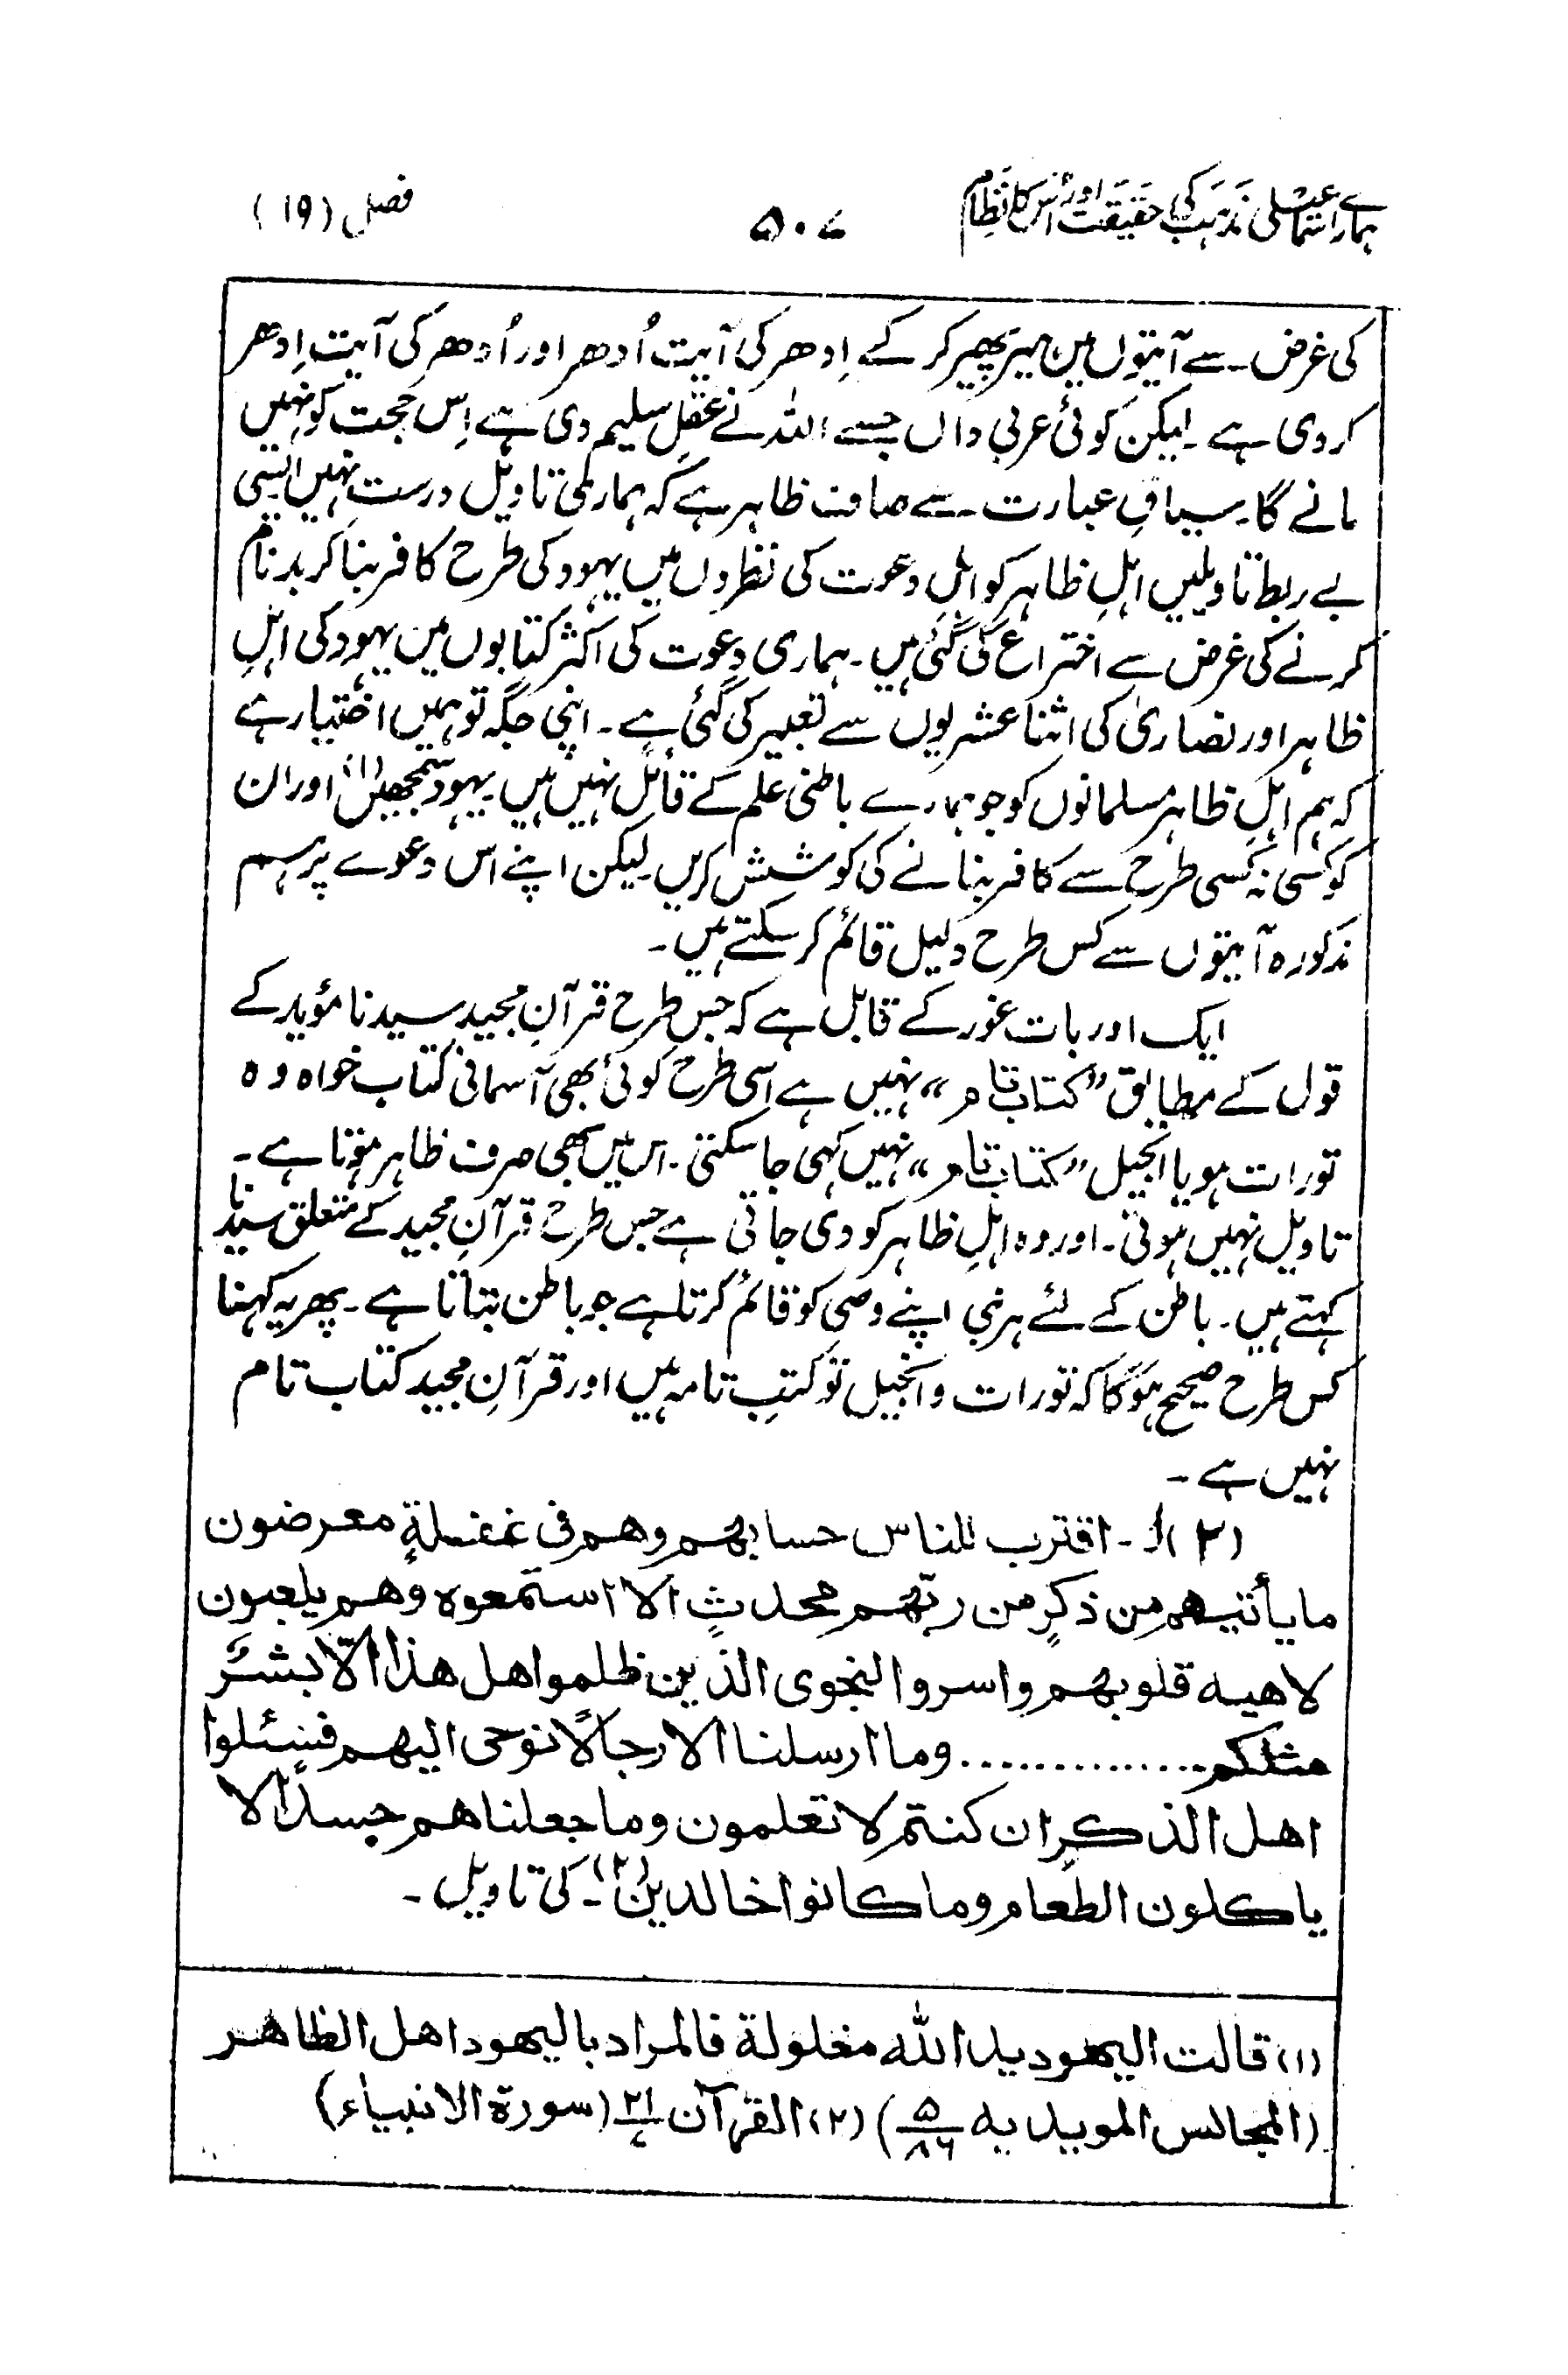 ہمارے اسماعیلی مذہب کی حقیقت اور اس کا نظام
۵۰۷
فصل (۱۹)
کی غرض سے آیتوں میں ہیر پھیر کر کے اِدھر کی آیت اُدھر اور اُدھر کی آیت اِدھر
کر دی ہے۔ لیکن کوئی عربی داں جسے اللہ نے عقلِ سلیم دی ہے اِس حجت کو نہیں
مانے گا۔ سیاقِ عبارت سے صاف ظاہر ہے کہ ہماری تاویل درست نہیں ایسی
بے ربط تاویلیں اہلِ ظاہر کو اہلِ دعوت کی نظروں میں یہود کی طرح کافر بنا کر بدنام
کرنے کی غرض سے اختراع کی گئی ہیں۔ ہماری دعوت کی اکثر کتابوں میں یہود کی اہلِ
ظاہر اور نصاریٰ کی اثنا عشریوں سے تعبیر کی گئی ہے۔ اپنی جگہ تو ہمیں اختیار ہے
کہ ہم اہلِ ظاہر مسلمانوں کو جو ہمارے باطنی علم کے قائل نہیں ہیں یہود سمجھیں (۱) اور ان
کو کسی نہ کسی طرح سے کافر بنانے کی کوشش کریں لیکن اپنے اس دعوے پر ہم
مذکورہ آیتوں سے کس طرح دلیل قائم کر سکتے ہیں۔
ایک اور بات غور کے قابل ہے کہ جس طرح قرآنِ مجید سیدنا مؤید کے
قول کے مطابق ”کتاب تام“ نہیں ہے اسی طرح کوئی بھی آسمانی کتاب خواہ وہ
تورات ہو یا انجیل ”کتاب تام“ نہیں کہی جا سکتی۔ اس میں بھی صرف ظاہر ہوتا ہے۔
تاویل نہیں ہوتی۔ اور وہ اہلِ ظاہر کو دی جاتی ہے جس طرح قرآنِ مجید کے متعلق سیدنا
کہتے ہیں۔ باطن کے لئے ہر نبی اپنے وصی کو قائم کرتا ہے جو باطن بتاتا ہے۔ پھر یہ کہنا
کس طرح صحیح ہوگا کہ تورات و انجیل تو کتبِ تامہ ہیں اور قرآنِ مجید کتاب تام
نہیں ہے۔
(۲) ا۔ اقترب للناس حسابهم وهم فی غفلةٍ معرضون
ما یأتیهم من ذکرٍ من ربّهم محدثٍ الا استمعوه وهم یلعبون
لاهیه قلوبهم واسروا النجوی الذین ظلموا هل هذا الّا بشر
مثلکم.............. وما ارسلنا الا رجالًا نوحی الیهم فسئلوا
اهل الذکر ان کنتم لا تعلمون وما جعلناهم جسدًا لا
یاکلون الطعام وما کانوا خالدین (۲)۔ کی تاویل۔
(۱) قالت الیهود ید الله مغلولة فالمراد بالیهود اهل الظاهر
(المجالس المویدیه ۵/۸۶) (۲) القرآن ۲۱/۷ (سورة الانبیاء)